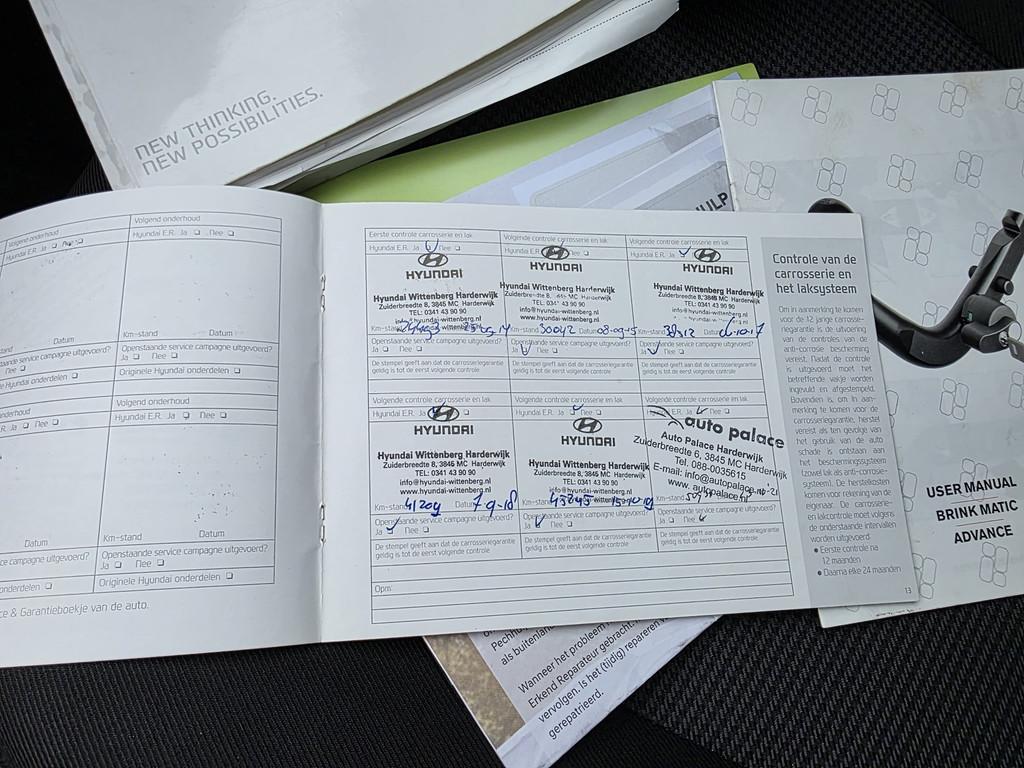 NEW THINKING.
NEW POSSIBILITIES.
Volgend onderhoud
Hyundai E.R. Ja ❏ Nee ❏
Datum
Km-stand Datum
Openstaande service campagne uitgevoerd?
Ja ❏ Nee ❏
Originele Hyundai onderdelen ❏
Hyundai E.R. Ja ❏ Nee ❏
Datum
Km-stand Datum
Openstaande service campagne uitgevoerd?
Ja ❏ Nee ❏
Originele Hyundai onderdelen ❏
& Garantieboekje van de auto.
Eerste controle carrosserie en lak
Hyundai E.R. Ja
HYUNDAI
Hyundai Wittenberg Harderwijk
Zuiderbreedte 8, 3845 MC Harderwijk
TEL: 0341 43 90 90
info@hyundai-wittenberg.nl
Km-stand
Openstaande service campagne uitgevoerd?
Ja ❏ Nee ❏
De stempel geeft aan dat de carrosseriegarantie
geldig is tot de eerst volgende controle
Volgende controle carrosserie en lak
HYUNDAI
Hyundai Wittenberg Harderwijk
Zuiderbreedte 8, 3845 MC Harderwijk
TEL: 0341 43 90 90
info@hyundai-wittenberg.nl
www.hyundai-wittenberg.nl
Km-stand 30042 Datum 08-09-15
Openstaande service campagne uitgevoerd?
Ja Nee ❏
De stempel geeft aan dat de carrosseriegarantie
geldig is tot de eerst volgende controle
Volgende controle carrosserie en lak
Hyundai E.R. Ja
HYUNDAI
Hyundai Wittenberg Harderwijk
Zuiderbreedte 8, 3845 MC Harderwijk
TEL: 0341 43 90 90
info@hyundai-wittenberg.nl
Km-stand Datum
Openstaande service campagne uitgevoerd?
Ja Nee ❏
De stempel geeft aan dat de carrosseriegarantie
geldig is tot de eerst volgende controle
Volgende controle carrosserie en lak
Hyundai E.R. Ja
HYUNDAI
Hyundai Wittenberg Harderwijk
Zuiderbreedte 8, 3845 MC Harderwijk
TEL: 0341 43 90 90
info@hyundai-wittenberg.nl
www.hyundai-wittenberg.nl
Km-stand 41209 Datum 7-9-18
Openstaande service campagne uitgevoerd?
Ja Nee ❏
De stempel geeft aan dat de carrosseriegarantie
geldig is tot de eerst volgende controle
Volgende controle carrosserie en lak
Hyundai E.R. Ja Nee ❏
HYUNDAI
Hyundai Wittenberg Harderwijk
Zuiderbreedte 8, 3845 MC Harderwijk
TEL: 0341 43 90 90
info@hyundai-wittenberg.nl
www.hyundai-wittenberg.nl
Km-stand 45345 15-10-19
Openstaande service campagne uitgevoerd?
Ja Nee ❏
De stempel geeft aan dat de carrosseriegarantie
geldig is tot de eerst volgende controle
Volgende controle carrosserie en lak
Hyundai E.R. Ja Nee ❏
auto palace
Auto Palace Harderwijk
Zuiderbreedte 6, 3845 MC Harderwijk
Tel. 088-0035615
E-mail: info@autopalace.nl
www. autopalace.nl
Km-stand
Openstaande service campagne uitgevoerd?
Ja ❏ Nee
De stempel geeft aan dat de carrosseriegarantie
geldig is tot de eerst volgende controle
Opm:
Controle van de
carrosserie en
het laksysteem
Om in aanmerking te komen
voor de 12 jarige carrosserie-
garantie is de uitvoering
van de controles van de
anti-corrosie bescherming
vereist. Nadat de controle
is uitgevoerd moet het
betreffende vakje worden
ingevuld en afgestempeld.
Bovendien is, om in aan-
merking te komen voor de
carrosseriegarantie, herstel
vereist als ten gevolge van
het gebruik van de auto
schade is ontstaan aan
het beschermingssysteem
(zowel lak als anti-corrosie-
systeem). De herstelkosten
komen voor rekening van de
eigenaar. De carrosserie-
en lakcontrole moet volgens
de onderstaande intervallen
worden uitgevoerd:
● Eerste controle na
12 maanden
● Daarna elke 24 maanden
13
HULP
USER MANUAL
BRINK MATIC
ADVANCE
als buitenland
Wanneer het probleem
Erkend Reparateur gebracht.
vervolgen. Is het (tijdig) repareren
gerepatrieerd.